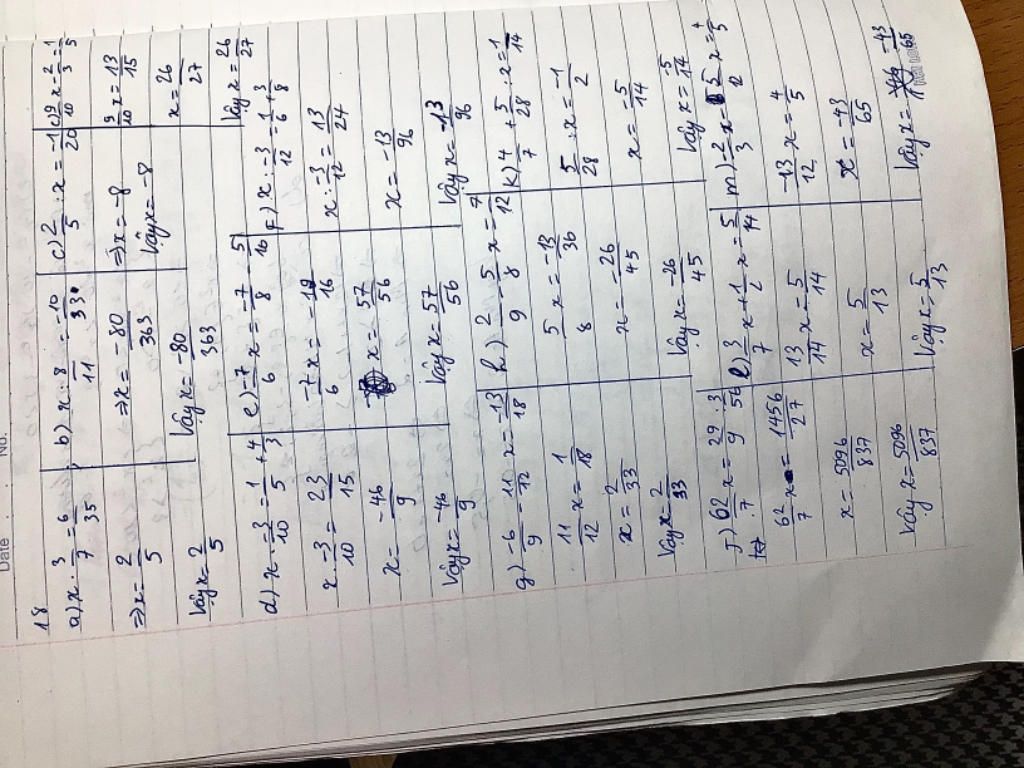 Date :
No:
18
a) x . 3/7 = 6/35
=> x = 2/5
Vậy x = 2/5
b) x : 8/11 = -10/33
=> x = -80/363
Vậy x = -80/363
c) 2/5 : x = -1/20
=> x = -8
Vậy x = -8
c) 9/10 x - 2/3 = 1/5
9/10 x = 13/15
x = 26/27
Vậy x = 26/27
d) x . -3/10 = 1/5 + 4/3
x . -3/10 = 23/15
x = -46/9
Vậy x = -46/9
e) -7/6 x = -7/8 - 5/16
-7/6 x = -19/16
x = 57/56
Vậy x = 57/56
f) x : -3/12 = 1/6 + 3/8
x : -3/12 = 13/24
x = -13/96
Vậy x = -13/96
g) -6/9 - 11/12 x = -13/18
11/12 x = 1/18
x = 2/33
Vậy x 2/33
h) 2/9 - 5/8 x = 7/12
5/8 x = -13/36
x = -26/45
Vậy x = -26/45
k) 4/7 + 5/28 : x = 1/14
5/28 : x = -1/2
x = -5/14
Vậy x = -5/14
J) 62/7 x = 29/9 : 3/56
62/7 x = 1456/27
x = 5096/837
Vậy x = 5096/837
l) 3/7 x + 1/2 x = 5/14
13/14 x = 5/14
x = 5/13
Vậy x = 5/13
m) -2/3 x - 5/12 x = 4/5
-13/12 x = 4/5
x = -43/65
Vậy x = -43/65